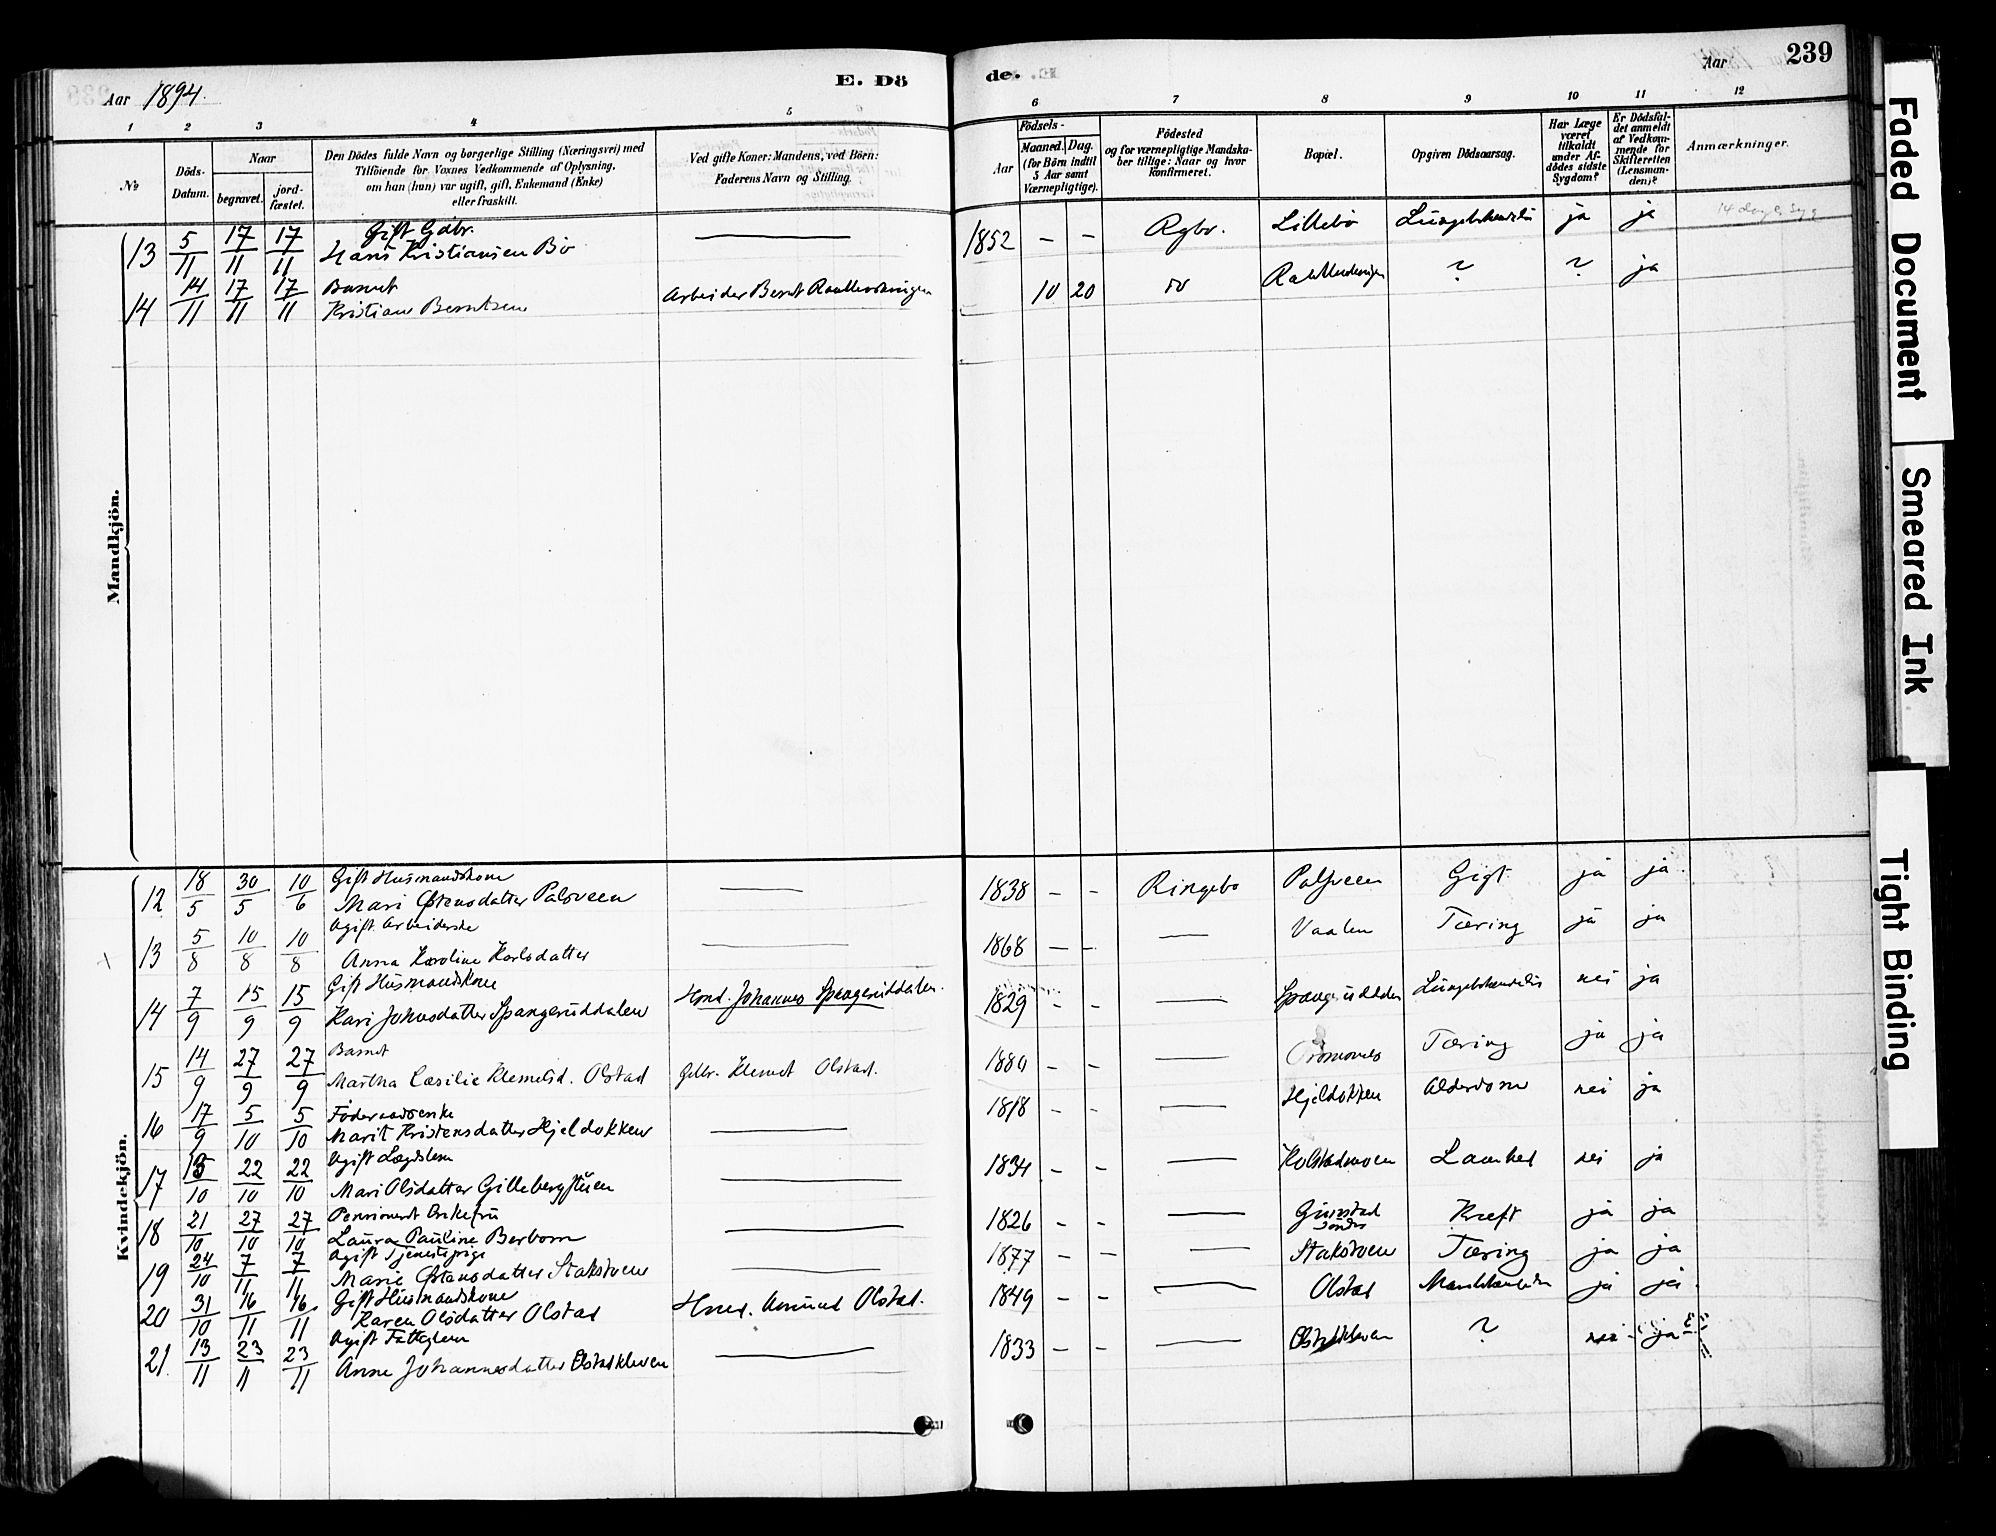 Aar 1894.
E. Dö
de.
Aar
239
1 2 3 4 5 6 7 8 9 10 11 12
№
Döds-Datum.
Naar
begravet.
jord-fæstet.
Den Dödes fulde Navn og borgerlige Stilling (Næringsvei) med
Tilföiende for Voxnes Vedkommende af Oplysning,
om han (hun) var ugift, gift, Enkemand (Enke)
eller fraskilt.
Ved gifte Koner: Mandens, ved Börn:
Faderens Navn og Stilling.
Födsels-
Aar
Maaned. Dag.
(for Börn indtil
5 Aar samt
Værnepligtige).
Födested
og for værnepligtige Mandska-
ber tillige: Naar og hvor
konfirmeret.
Bopæl.
Opgiven Dödsaarsag.
Har Læge
været
tilkaldt
under Af-
dödes sidste
Sygdom?
Er Dödsfal-
det anmeldt
af Vedkom-
mende for
Skifteretten
(Lensman-
den)?
Anmærkninger.
Mandkjön.
13 5/11 17/11 17/11 Gift Gdbr.
Hans Kristiansen Bö — 1852 - - Rgbo. Lillebö ja ja 14 dage syg
14 14/11 17/11 17/11 Barnet
Kristian Berntsen Arbeider Bernt 10 20 do ? ? ja
Kvindekjön.
12 18/5 30/5 10/6 Gift Husmandskone
Mari Østensdatter Palsveen — 1838 - - Ringebo Palsveen Gigt ja ja.
13 5/8 10/8 10/8 Ugift Arbeiderske
Anna Karoline Karlsdatter — 1868 - - — Vaalen Tæring ja ja
14 7/9 15/9 15/9 Gift Husmandskone
Kari Johnsdatter Spangruddalen Hmd. Johannes Spangruddalen. 1829 - - — nei ja
15 14/9 27/9 27/9 Barnet
Martha Cæsilie Klemetsd. Olstad Gdbr. Klemet Olstad. 1880 - - — Tæring ja ja
16 17/9 5/10 5/10 Föderaadsenke
Marit Kristensdatter Hjeldokken — 1818 - - — Hjeldokken Alderdom nei ja
17 15/10 22/10 22/10 Ugift Lægdslem
Mari Olsdatter Gillebergstuen — 1834 - - — Kolstadmoen Lamhed nei ja
18 21/10 27/10 27/10 Pensioneret Enkefru
Laura Pauline Berbom — 1826 - - — Gunstad
söndre Kræft ja ja
19 24/10 7/11 7/11 Ugift Tjenestepige
Marie Østensdatter Stakstoen — 1877 - - — Stakstoen Tæring ja ja
20 31/10 16/11 16/11 Gift Husmandskone
Karen Olsdatter Olstad Hmd. Amund Olstad. 1849 - - — Olstad ja ja.
21. 13/11 23/11 23/11 Ugift Fattiglem
Anne Johannesdatter Olstadkleven — 1833 - - — Olstadkleven ? nei ja
Faded Document
Smeared Ink
Tight Binding